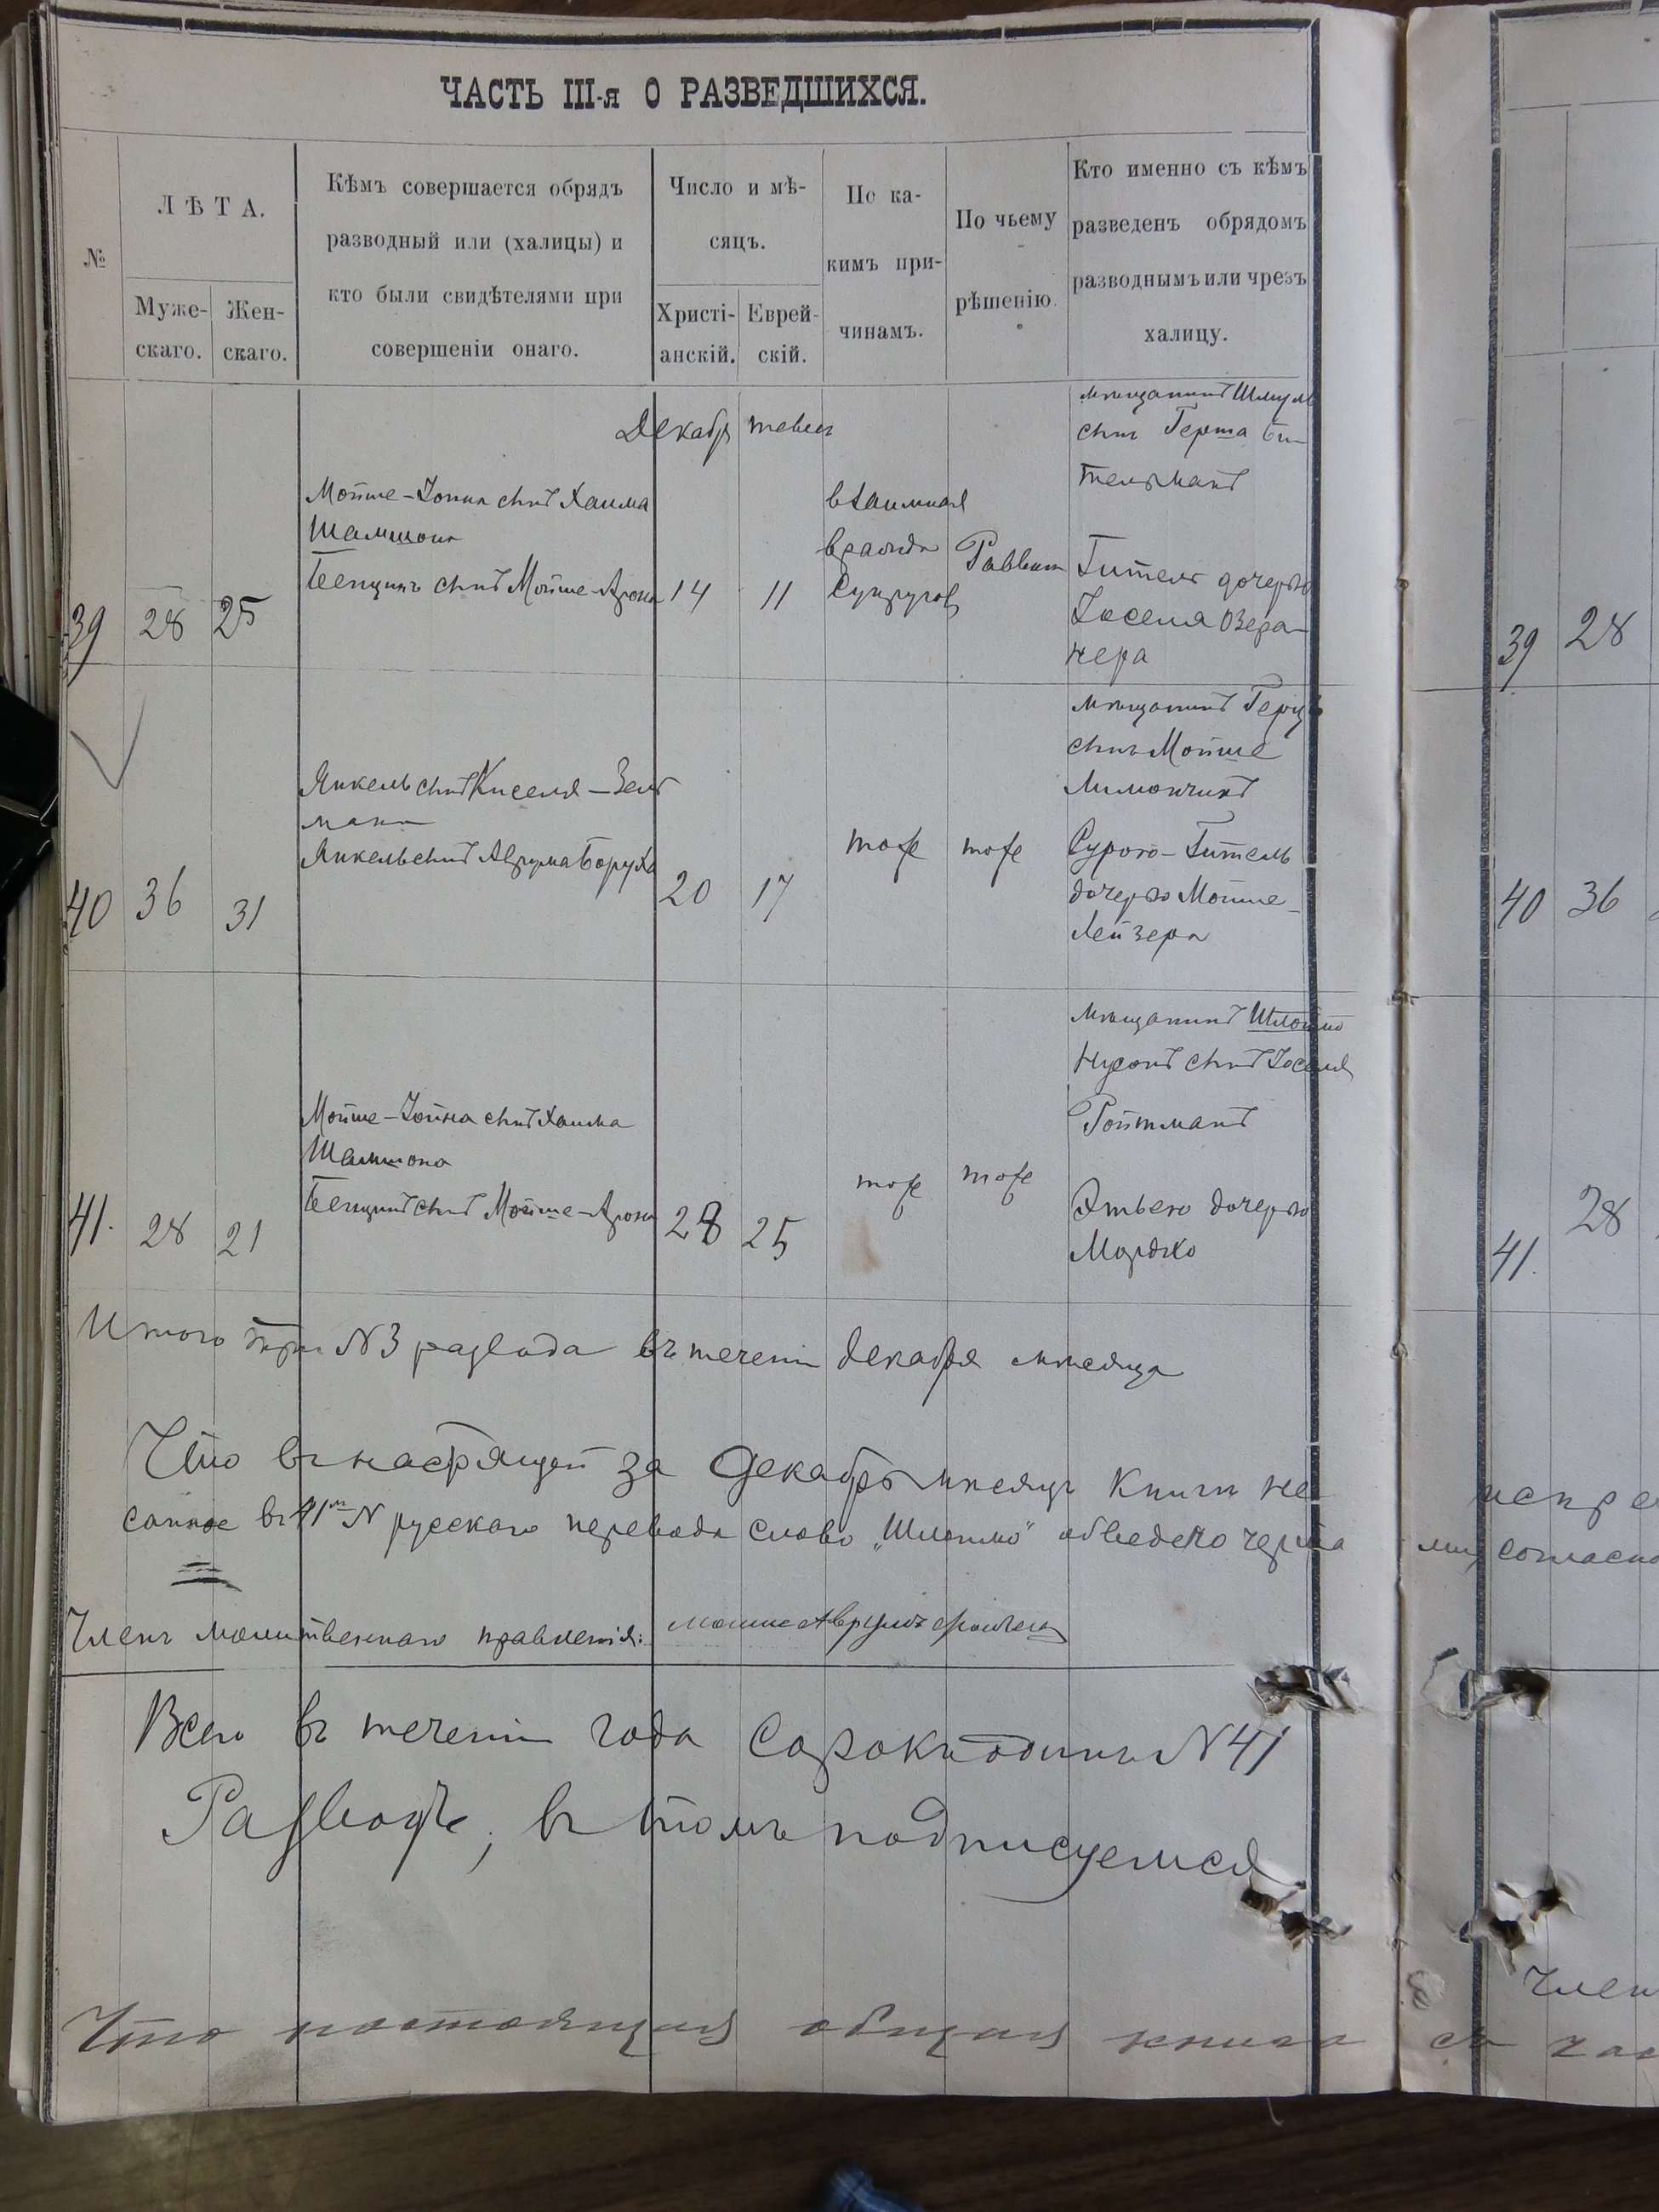 ЧАСТЬ III-я О РАЗВЕДШИХСЯ.
№
ЛѢТА.
Муже-
скаго.
Жен-
скаго.
Кѣмъ совершается обрядъ
разводный или (халицы) и
кто были свидѣтелями при
совершеніи онаго.
Число и мѣ-
сяцъ.
Христі-
анскій.
Еврей-
скій.
По ка-
кимъ при-
чинамъ.
По чьему
рѣшенію.
Кто именно съ кѣмъ
разведенъ обрядомъ
разводнымъ или чрезъ
халицу.
Декабр
39
28
25
Мойше-Іойна сынъ Хаима
Шамшона
сынъ Мойше-Арона
14
11
взаимная
вражда
Супруговъ
Раввин
мѣщанинъ Шмуль
сынъ Герша
тельманъ
Гитель дочерью
Іоселя Озера-
нера
39 28
40
36
31
Янкель сынъ Киселя-Зель
мана
Янкель сынъ Аврума Боруха
20
17
тоже
тоже
мѣщанинъ Герцъ
сынъ Мойше
Лимончикъ
Сурою-Гитель
дочерью Мойше-
Лейзера
40 36
41.
28
21
Мойше-Іойна сынъ Хаима
Шамшона
сынъ Мойше-Арона
28
25
тоже
тоже
мѣщанинъ Шлоймо
Нусонъ сынъ Іоселя
Ройтманъ
Этьею дочерью
Мордко
41. 28
Итого три №3 развода въ течени декабря мѣсяца
Что въ настоящей за Декабрь мѣсяцъ книги не
санное въ 41м № русскаго перевода слово „Шлоймо“ обведено черта
ми, согласно
Членъ молитвеннаго правленія:
Всего въ течени года сорокъ одинъ №41
Разводъ, въ томъ подписуемся
Член
Что настоящая общая книга съ час